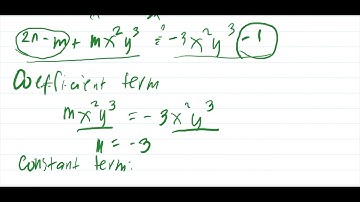 2n - m + mx²y³ = -3x²y³ - 1
Coefficient term
mx²y³ = -3x²y³
m = -3
Constant term: